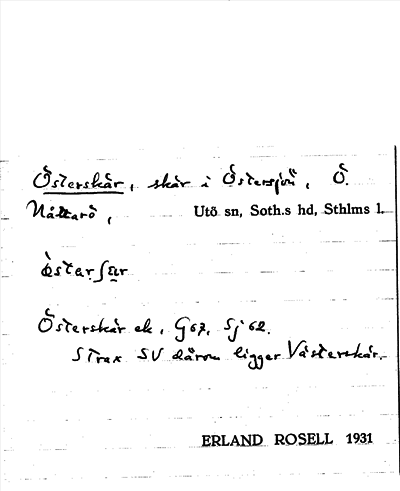 Österskär, skär i Östersjön, Ö.
Nåttarö, Utö sn, Soth.s hd, Sthlms l.
Österskär ek, G67, Sj 62.
Strax SV därom ligger Västerskär.
ERLAND ROSELL 1931